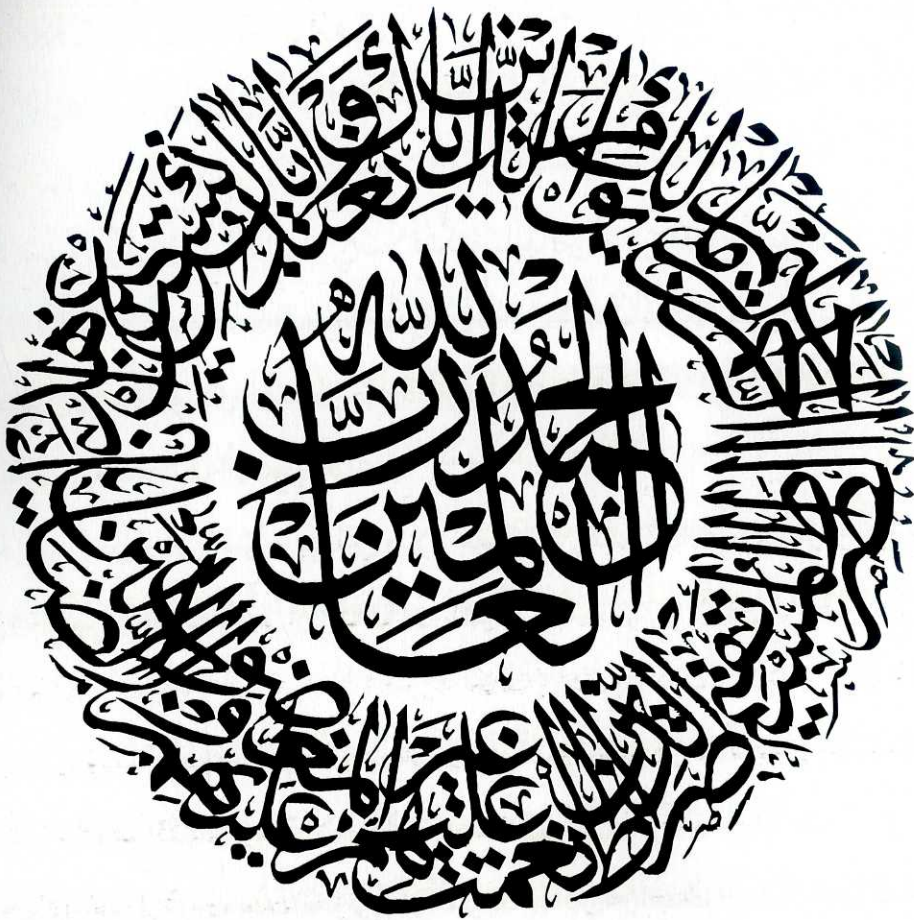 الحمد لله رب العالمين
الرحمن الرحيم ملك يوم الدين إياك نعبد وإياك نستعين اهدنا
الصراط المستقيم صراط الذين أنعمت عليهم غير المغضوب عليهم ولا الضالين